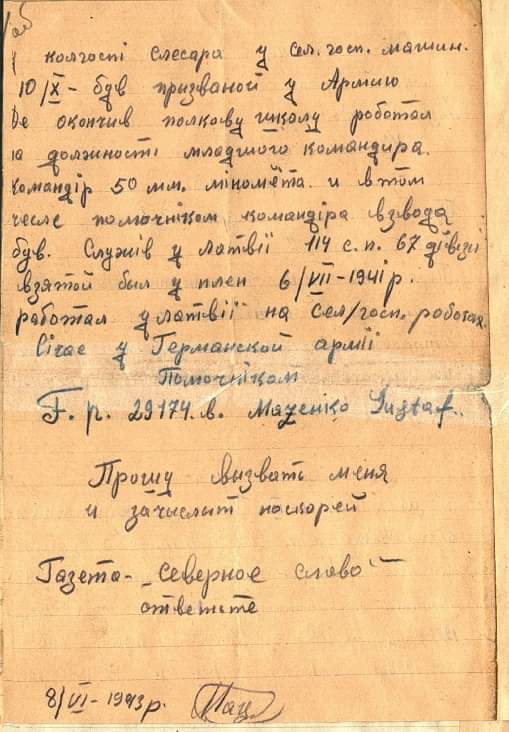 колгоспі слесара у сел. госп. машин.
10/X- був призваной у Армию
де окончив полкову школу роботал
на должності младшого командира.
командір 50 мм. міномёта. и в том
числе помочніком командіра взвода
був. Служів у латвії 114 с. п. 67 дівізії
взятой был у плен 6/VII-1941 р.
работал у латвії на Сел/госп. роботах.
Січас у Германской армії
Помочніком
F. p. 29174. в. Маценко Gustaf.
Прошу вызвать меня
и зачыслит наскорей
Газета- „северное слово"
ответьте
8/VI-1943 р.